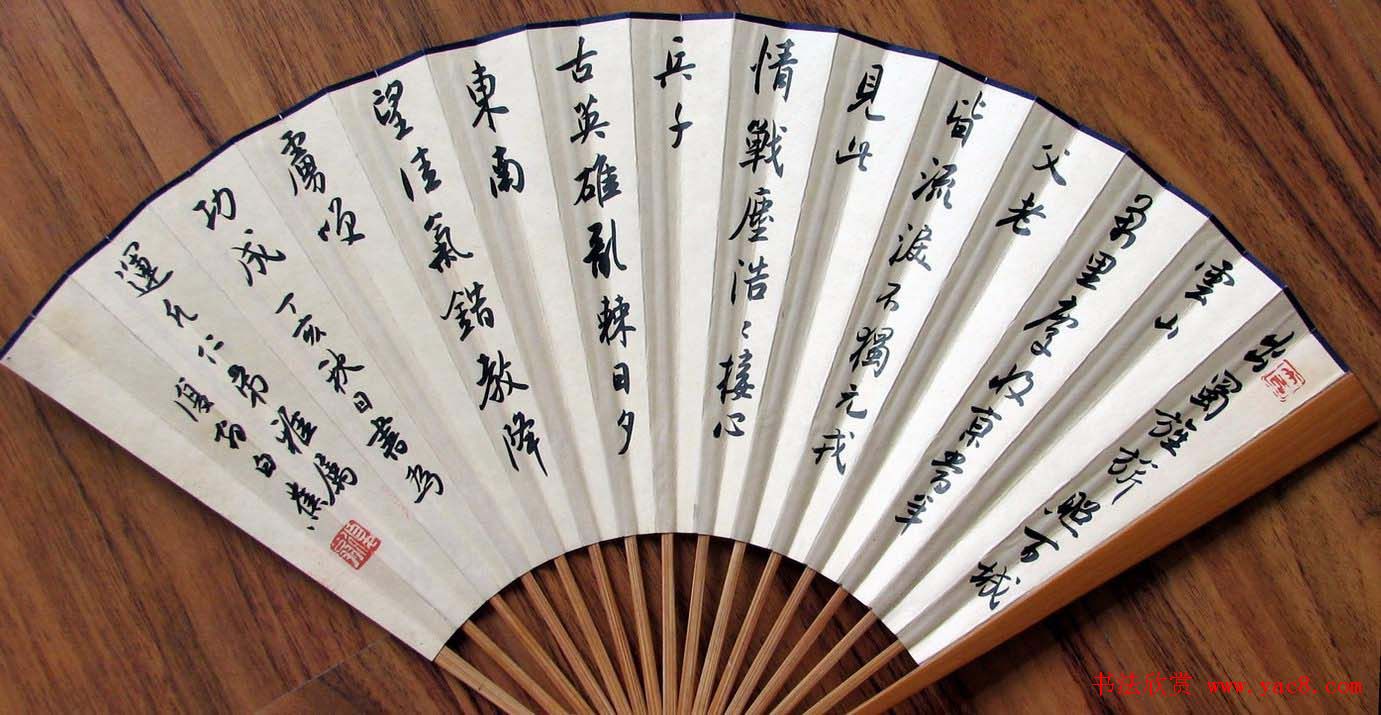 出蜀旌旂照百城
雲山
萬里慶收京當年
父老
皆流淚不獨元戎
見此
情戰塵浩〻接心
兵千
古英雄亂棘日夕
東南
望佳氣錯教降
虜頌
功成丁亥秋日書為
運仁弟雅屬
復翁白蕉
书法欣赏 www.yac8.com